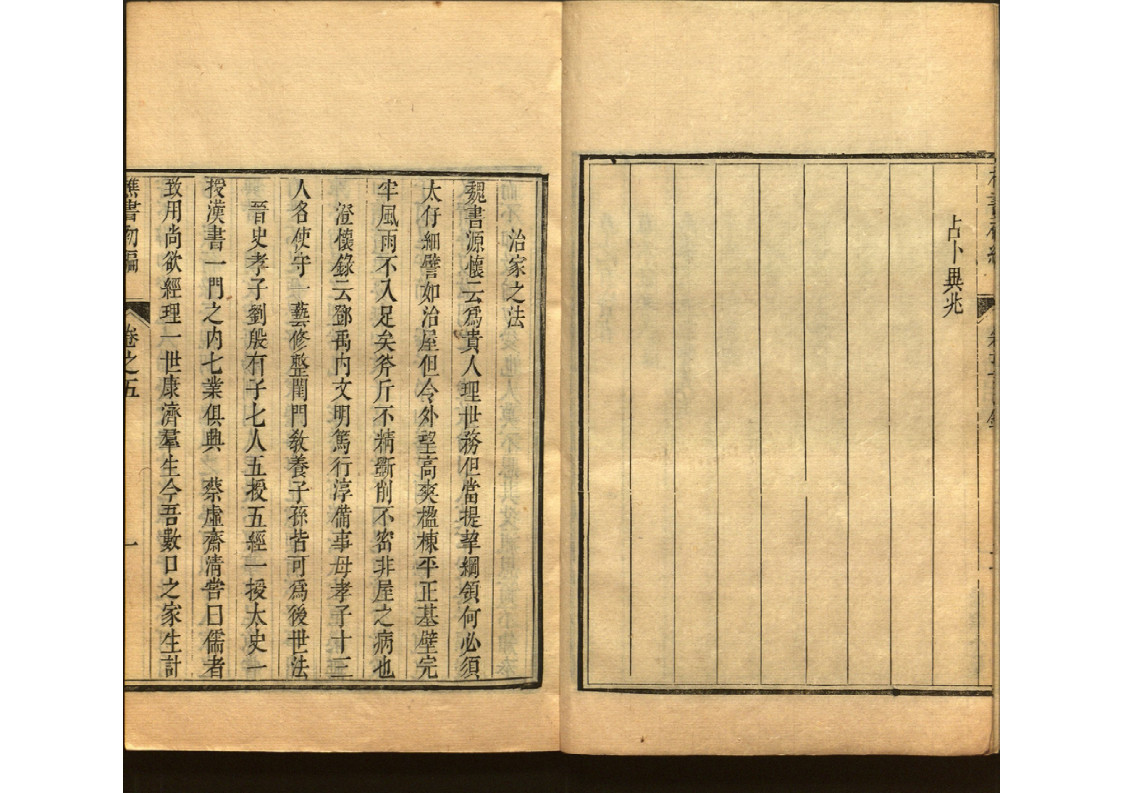 占卜異兆
治家之法
魏書源懷云爲貴人理世務但當提挈綱領何必須
太仔細譬如治屋但今外望高爽楹棟平正基壁完
牢風雨不入足矣斧斤不精斵削不密非屋之病也
澄懷錄云鄧禹内文明篤行淳備事母孝子十三
人名使守一藝修整閨門敎養子孫皆可爲後世法
晉史孝子劉殷有子七人五授五經一授太史一
授漢書一門之内七業俱興 蔡虛齋清嘗曰儒者
致用尚欲經理一世康濟羣生今吾數口之家生計
樵書初編 卷之五 一